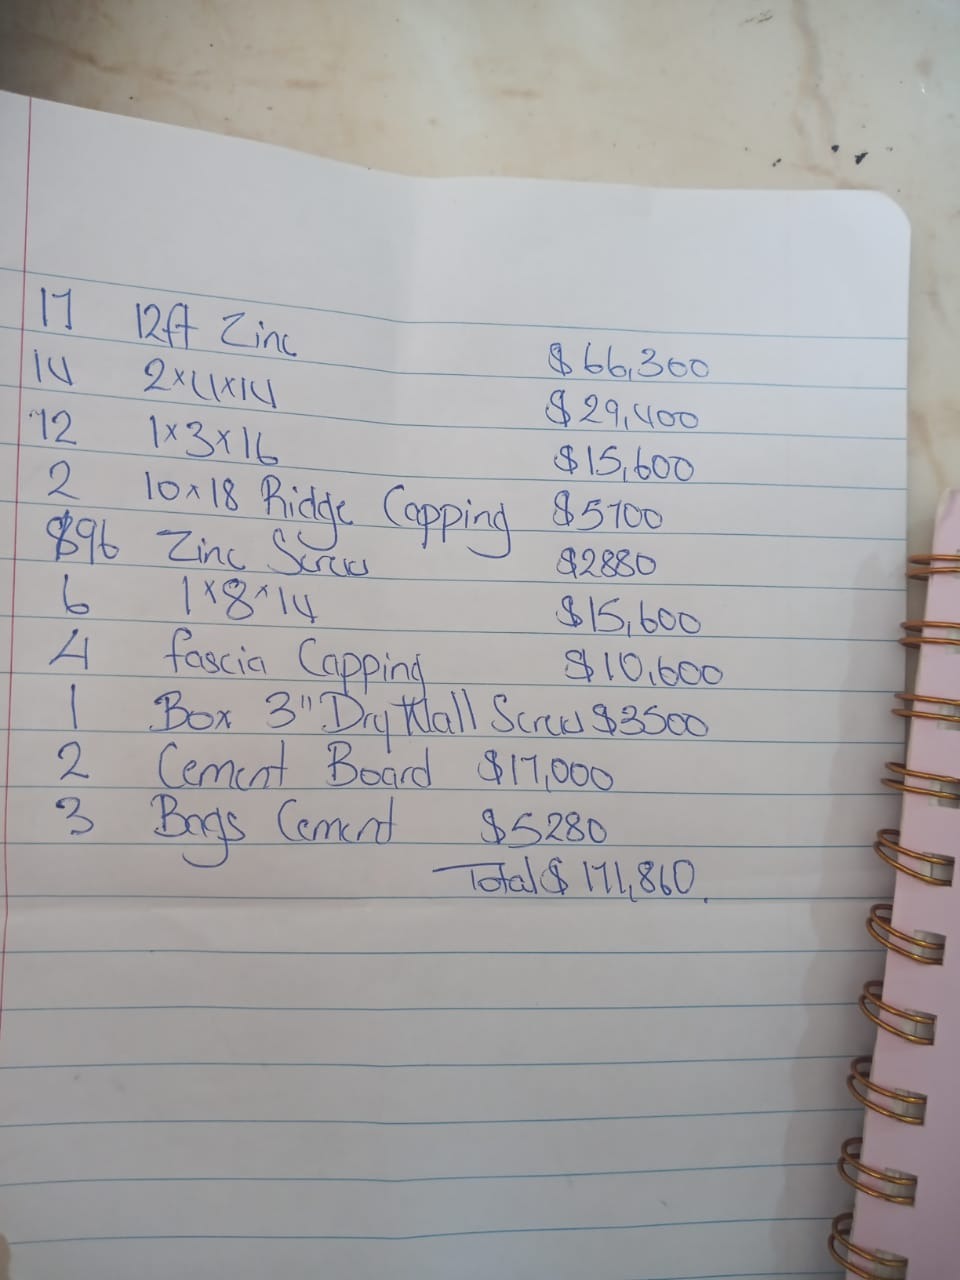 17 12ft Zinc $66,300
14 2x4x14 $29,400
12 1x3x16 $15,600
2 10x18 Ridge Capping $5700
$96 Zinc Screws $2880
6 1x8x14 $15,600
4 fascia Capping $10,600
1 Box 3" Dry Wall Screw $3500
2 Cement Board $17,000
3 Bags Cement $5280
Total $171,860.